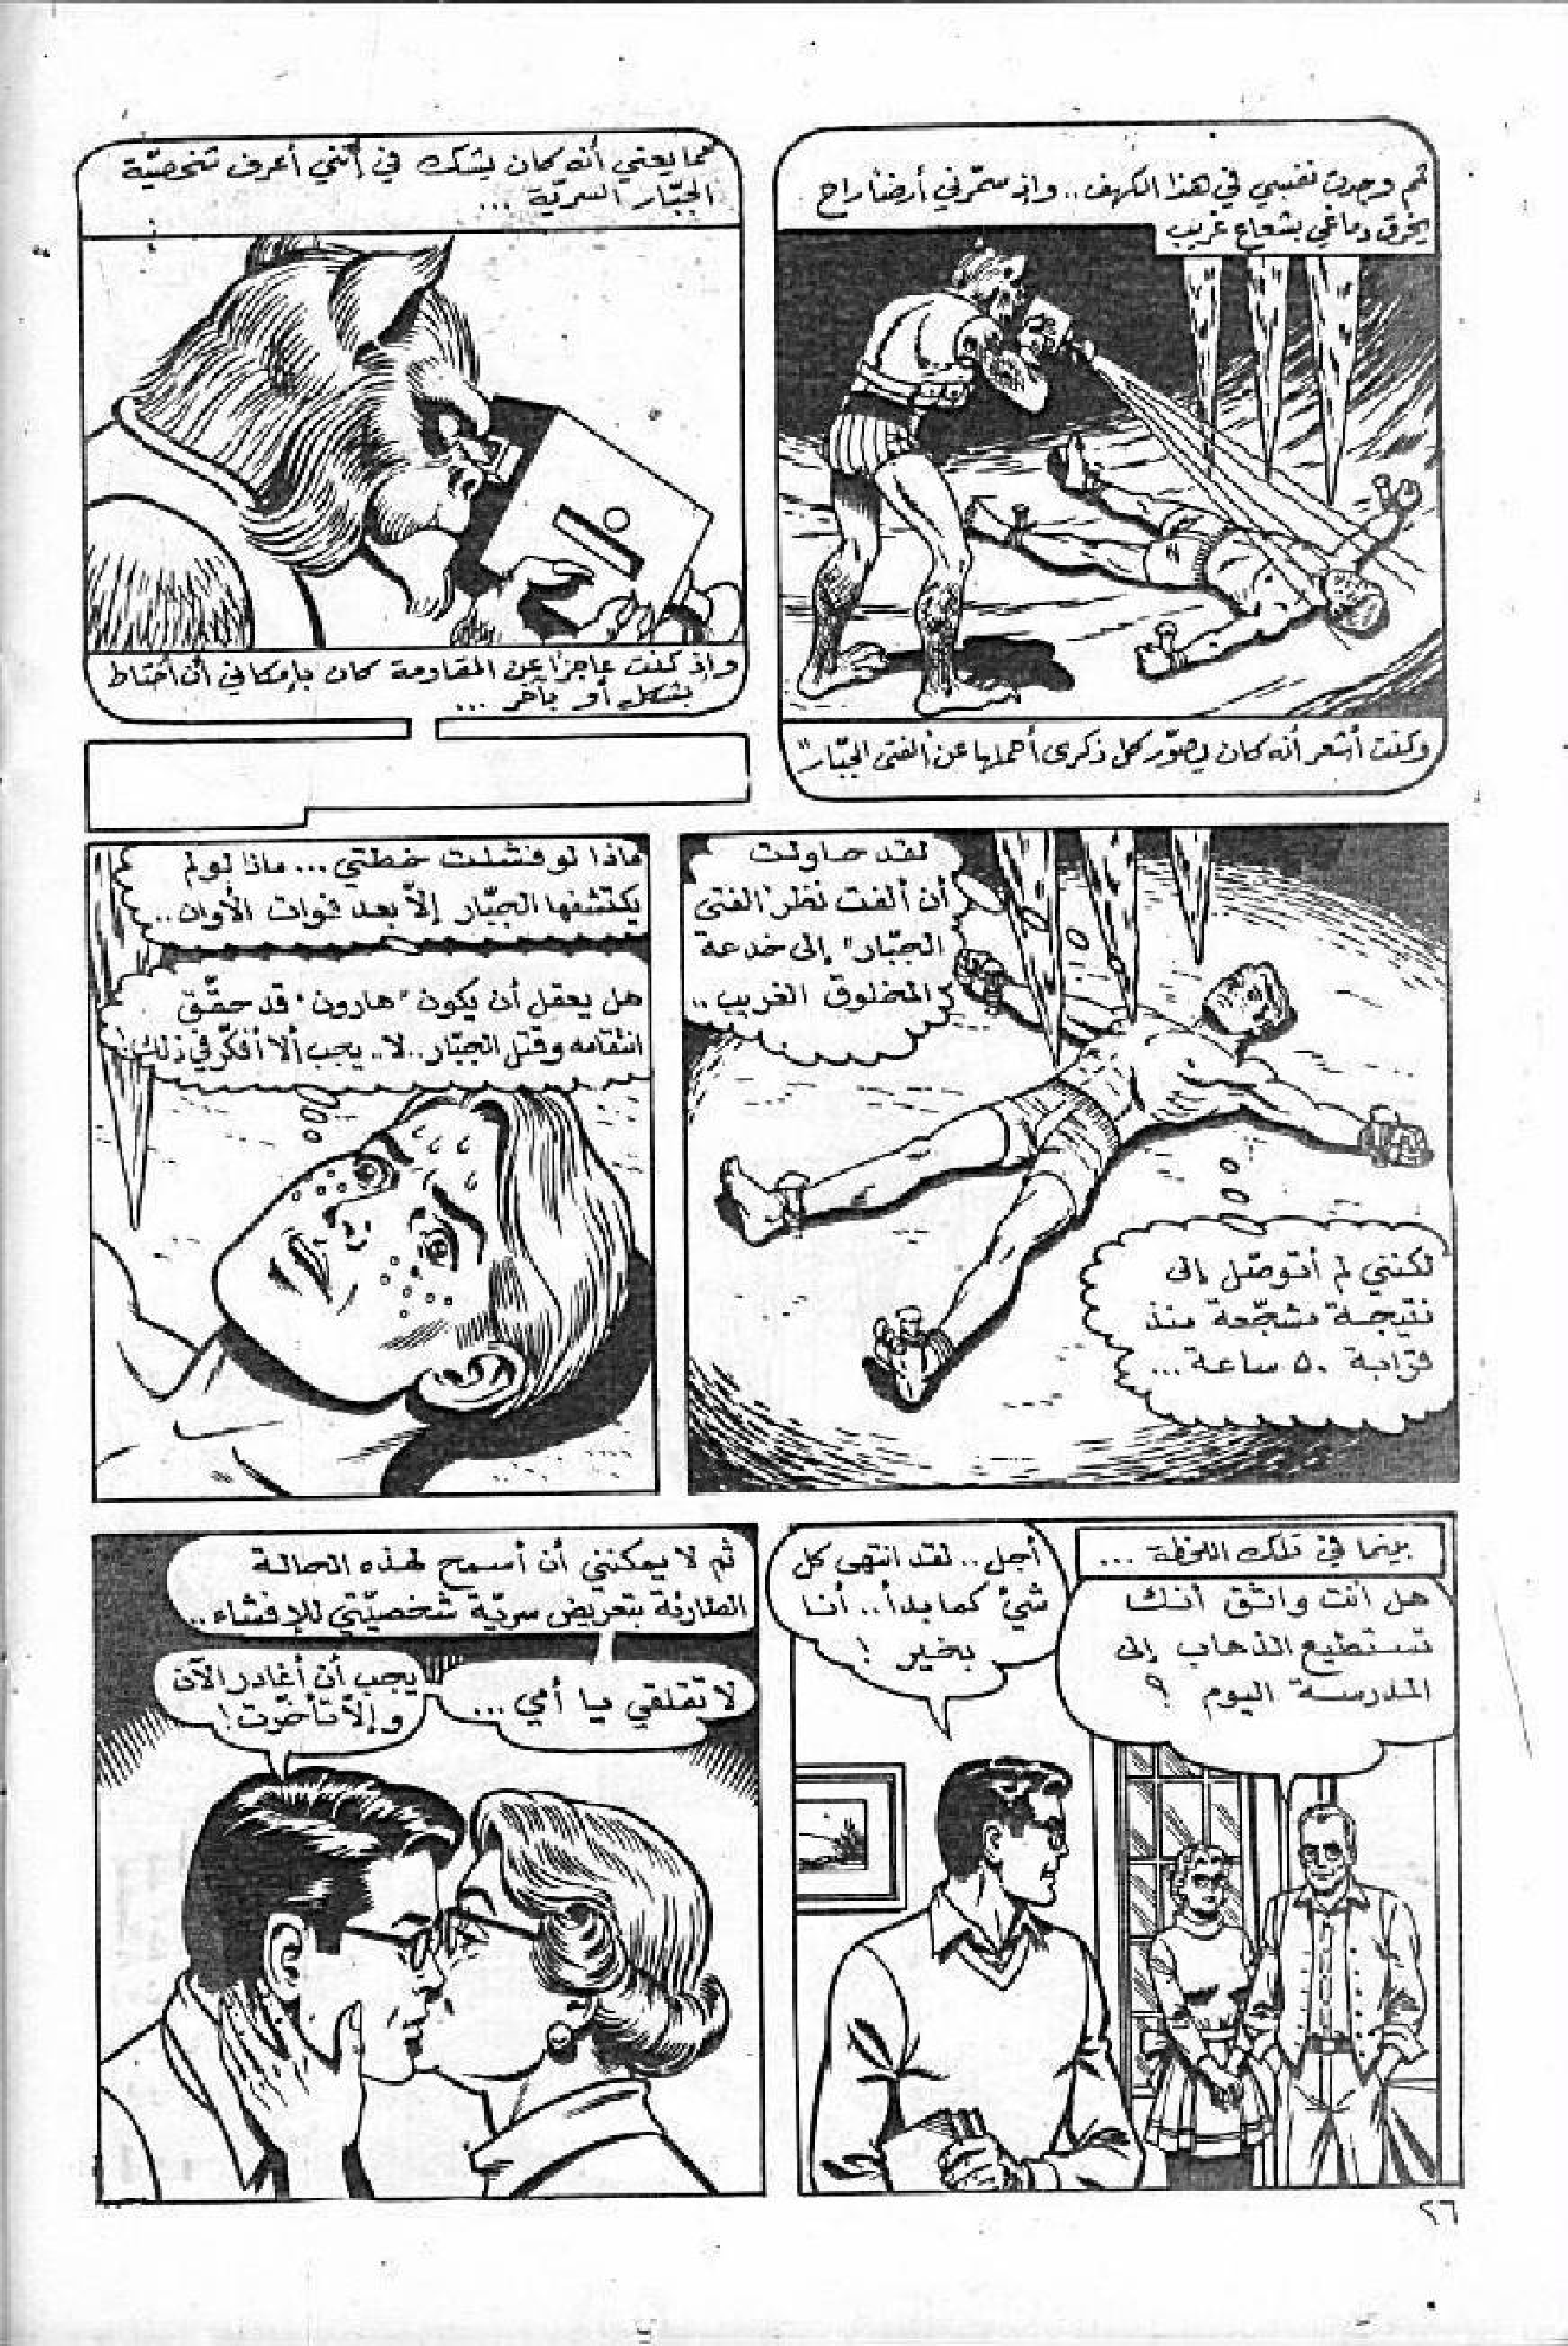 ثم وجدت نفسي في هذا الكهف.. وإذ سمّرني أرضاً راح
يخرق دماغي بشعاع غريب
وكنت أشعر أنه كان يصوّر كل ذكرى أحملها عن "الفتى الجبّار"
مما يعني أنه كان يشك في أنني أعرف شخصيّة
الجبّار السريّة ...
وإذ كنت عاجزاً عن المقاومة كان بإمكاني أن أحتاط
بشكل أو بآخر ...
لقد حاولت
أن ألفت نظر "الفتى
الجبّار" إلى خدعة
المخلوق الغريب..
لكنني لم أتوصّل إلى
نتيجة مشجّعة منذ
قرابة ٥٠ ساعة...
ماذا لو فشلت خطتي... ماذا لو لم
يكتشفها الجبّار إلاّ بعد فوات الأوان..
هل يعقل أن يكون "هارون" قد حقّق
انتقامه وقتل الجبّار.. لا.. يجب ألا أفكّر في ذلك!
بينما في تلك اللحظة ...
هل أنت واثق أنك
تستطيع الذهاب إلى
المدرسة اليوم ؟
أجل.. لقد انتهى كل
شيء كما بدأ.. أنا
بخير !
ثم لا يمكنني أن أسمح لهذه الحالة
الطارئة بتعريض سريّة شخصيّتي للإفشاء..
لا تقلقي يا أمي ...
يجب أن أغادر الآن
وإلاّ تأخّرت!
٢٦